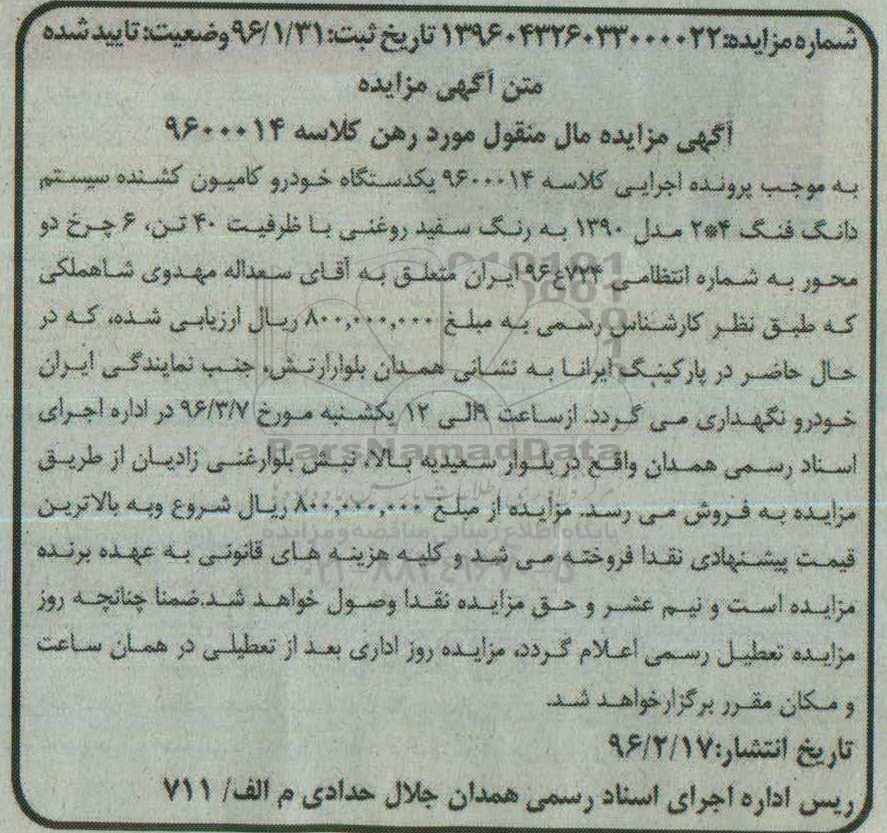 شماره مزایده: ۱۳۹۶۰۴۳۲۶۰۳۳۰۰۰۰۲۲ تاریخ ثبت: ۹۶/۱/۳۱ وضعیت: تایید شده
متن آگهی مزایده
آگهی مزایده مال منقول مورد رهن کلاسه ۹۶۰۰۰۱۴
به موجب پرونده اجرایی کلاسه ۹۶۰۰۰۱۴ یکدستگاه خودرو کامیون کشنده سیستم
دانگ فنگ ۴*۲ مدل ۱۳۹۰ به رنگ سفید روغنی با ظرفیت ۴۰ تن، ۶ چرخ دو
محور به شماره انتظامی ۷۲۴ع۹۶ ایران متعلق به آقای سعداله مهدوی شاهملکی
که طبق نظر کارشناس رسمی به مبلغ ۸۰۰,۰۰۰,۰۰۰ ریال ارزیابی شده، که در
حال حاضر در پارکینگ ایرانا به نشانی همدان بلوارارتش، جنب نمایندگی ایران
خودرو نگهداری می گردد. ازساعت ۹الی ۱۲ یکشنبه مورخ ۹۶/۳/۷ در اداره اجرای
اسناد رسمی همدان واقع در بلوار سعیدیه بالا، نبش بلوارغنی زادیان از طریق
مزایده به فروش می رسد. مزایده از مبلغ ۸۰۰,۰۰۰,۰۰۰ ریال شروع وبه بالاترین
قیمت پیشنهادی نقدا فروخته می شد و کلیه هزینه های قانونی به عهده برنده
مزایده است و نیم عشر و حق مزایده نقدا وصول خواهد شد.ضمنا چنانچه روز
مزایده تعطیل رسمی اعلام گردد، مزایده روز اداری بعد از تعطیلی در همان ساعت
و مکان مقرر برگزارخواهد شد.
تاریخ انتشار:۹۶/۲/۱۷
رییس اداره اجرای اسناد رسمی همدان جلال حدادی م الف/ ۷۱۱
ParsNamadData
پایگاه اطلاع رسانی مناقصه و مزایده